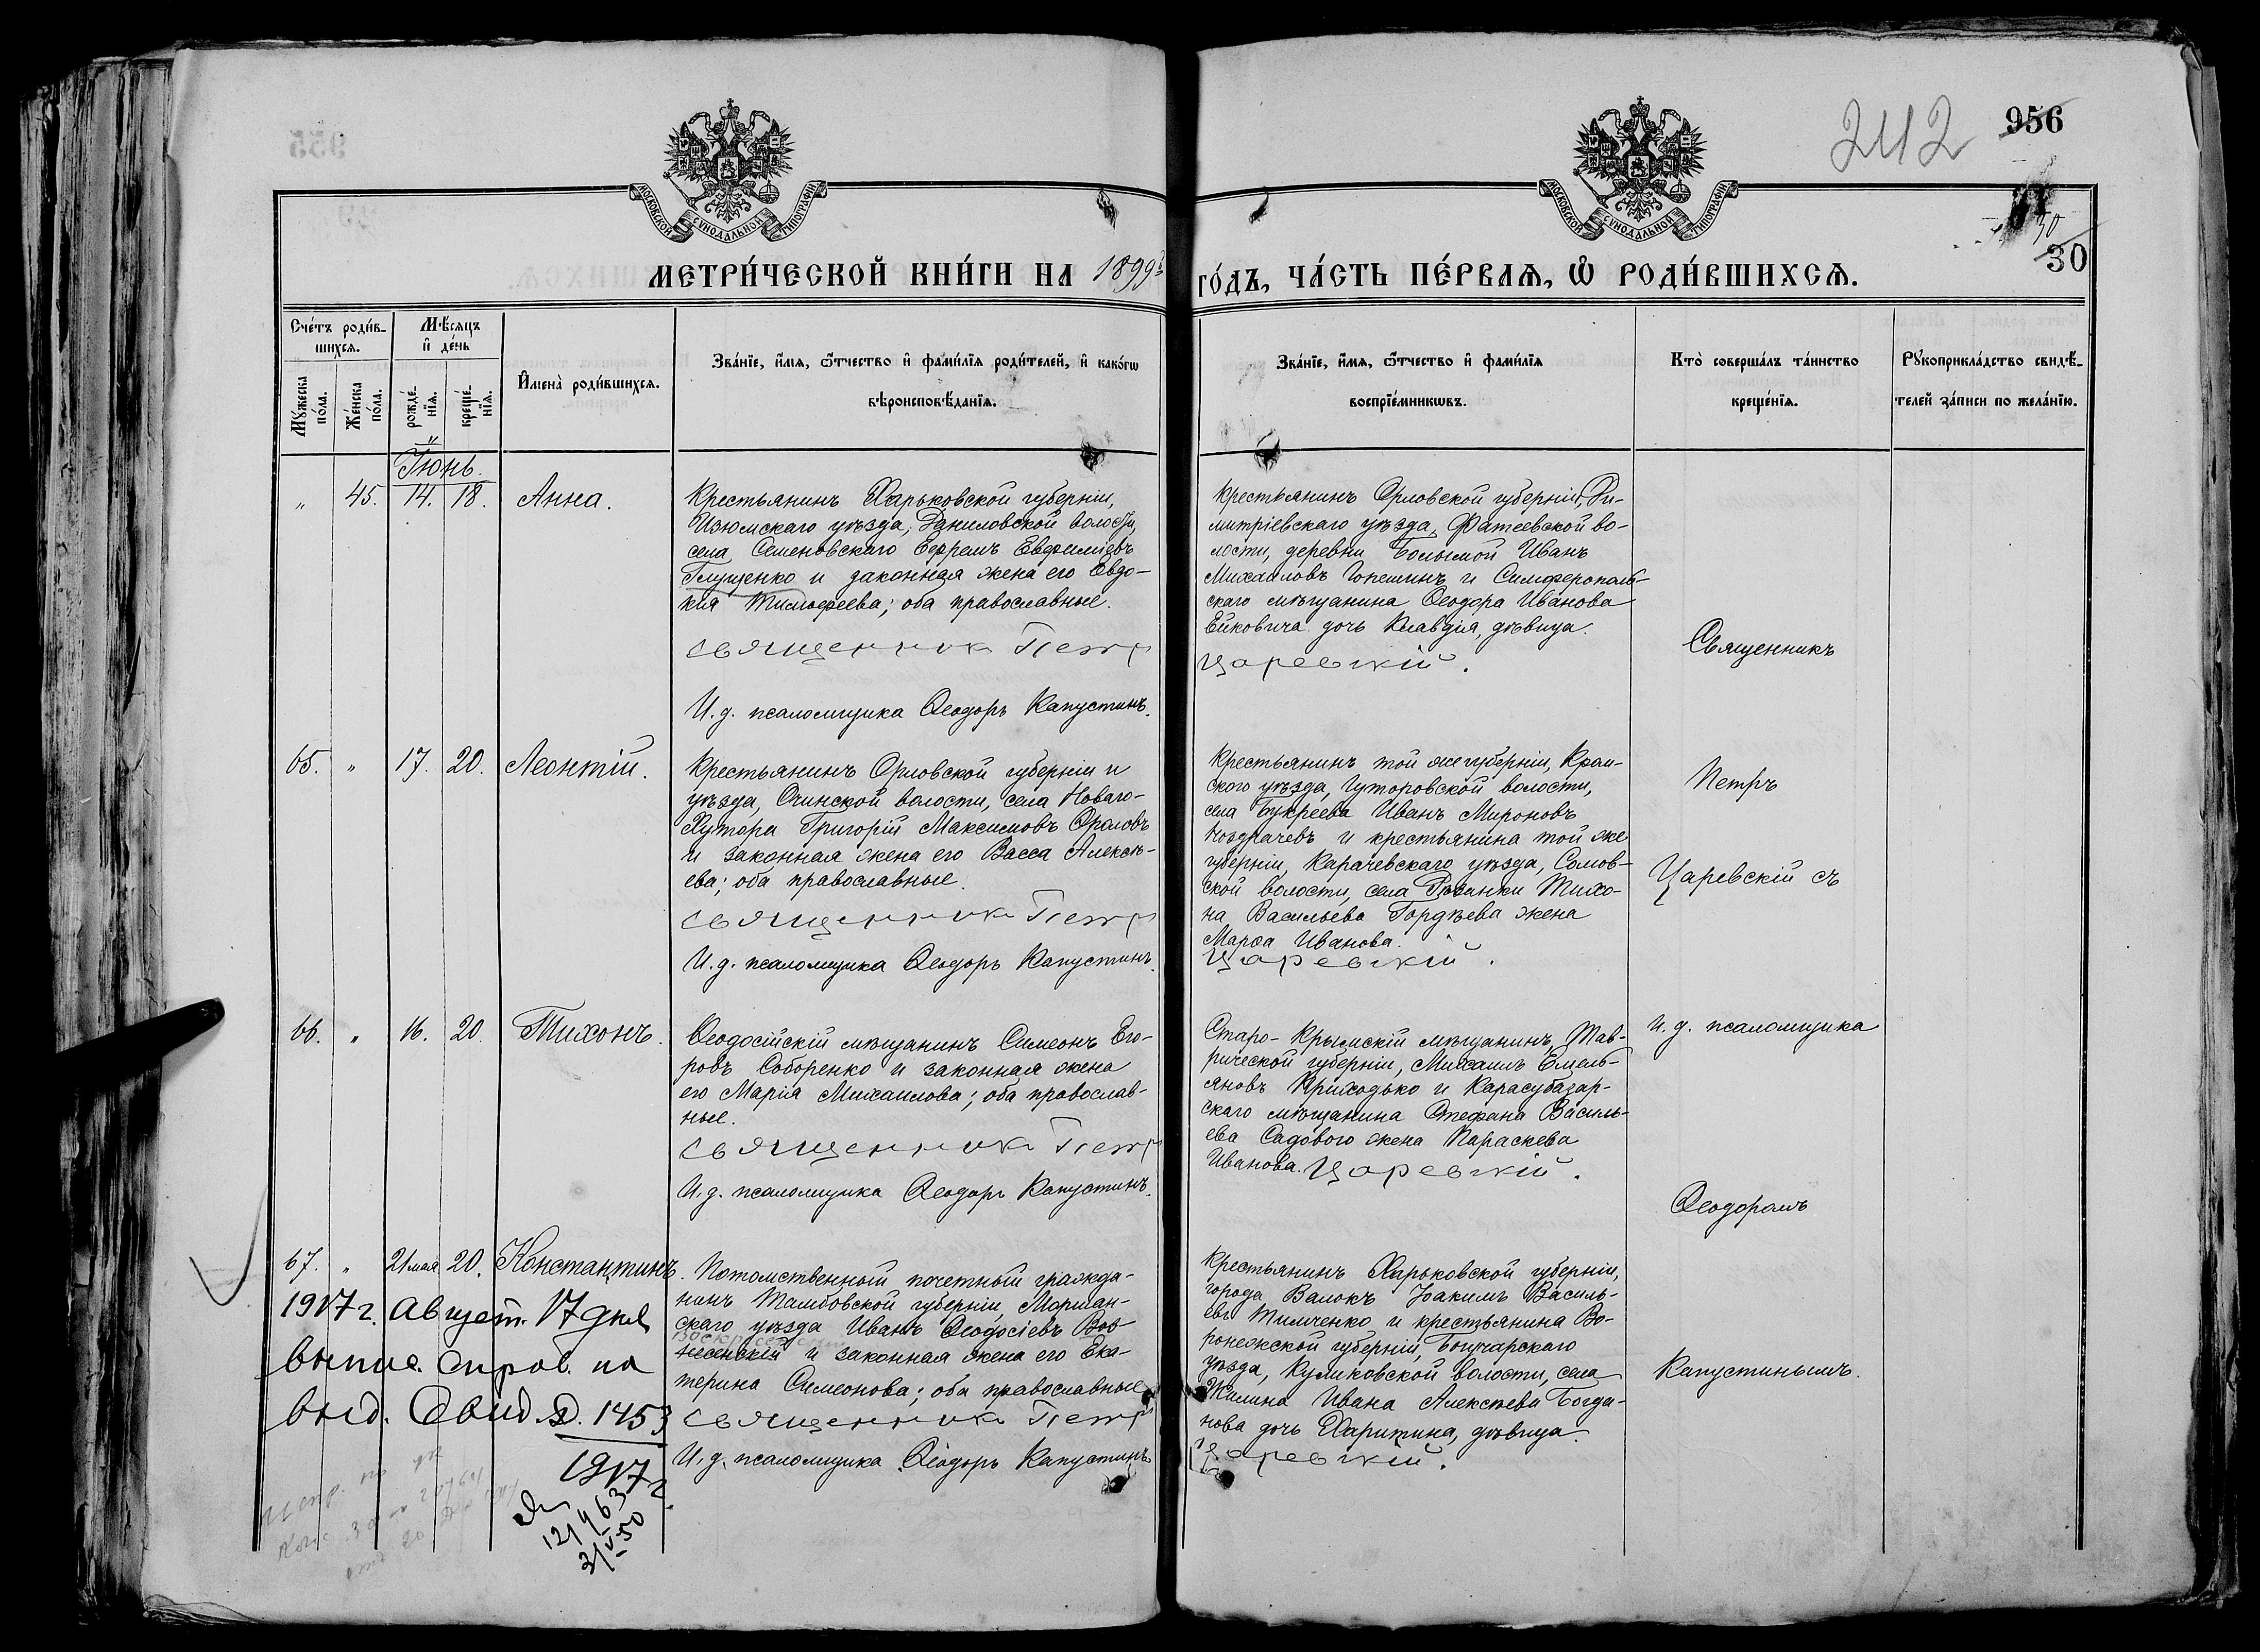 956
242
МОСКОВСКОЙ СѴНОДАЛЬНОЙ ТИПОГРАФІИ
МОСКОВСКОЙ СѴНОДАЛЬНОЙ ТИПОГРАФІИ
30
30
МЕТРИ́ЧЕСКОЙ КНИ́ГИ НА 1899й
ГО́ДЪ, ЧА́СТЬ ПЕ́РВАѦ, Ѽ РОДИ́ВШИХСѦ.
Сче́тъ роди́в-
шихсѧ.
Мꙋ́жеска
по́ла.
Же́нска
по́ла.
Мѣ́сѧцъ
и҆ де́нь
рожде́-
нїѧ.
креще́-
нїѧ.
И҆мена̀ роди́вшихсѧ.
Зва́нїе, и҆́мѧ, ѻ҆́тчество и҆ фами́лїѧ роди́телей, и҆ како́гѡ
вѣроисповѣ́данїѧ.
Зва́нїе, и҆́мѧ, ѻ҆́тчество и҆ фами́лїѧ
воспрїе́мникѡвъ.
Кто̀ соверша́лъ та́инство
креще́нїѧ.
Рꙋкоприкла́дство свидѣ́-
телей за́писи по жела́нїю.
Іюнь.
„ 45. 14. 18. Анна.
Крестьянинъ Харьковской губерніи,
Изюмскаго уѣзда, Даниловской волости,
села Семеновскаго Ефремъ Евфиміевъ
Глущенко и законная жена его Евдо-
кія Тимофеева; оба православные.
Священникъ Петръ
И. д. псаломщика Ѳеодоръ Капустинъ.
Крестьянинъ Орловской губерніи, Ди-
митріевскаго уѣзда, Фатеевской во-
лости, деревни Большой Иванъ
Михаиловъ и Симферополь-
скаго мѣщанина Ѳеодора Иванова
Ейковича дочь Клавдія, дѣвица.
Царевскій.
Священникъ
65. „ 17. 20. Леонтій.
Крестьянинъ Орловской губерніи и
уѣзда, волости, села Новаго-
Хутора Григорій Максимовъ Фроловъ
и законная жена его Васса Алексѣ-
ева; оба православные.
Священникъ Петръ
И. д. псаломщика Ѳеодоръ Капустинъ.
Крестьянинъ той же губерніи, Кром-
ского уѣзда, Гуторовской волости,
села Букреева Иванъ Мироновъ
Ноздрачевъ и крестьянина той же
губерніи, Карачевскаго уѣзда,
ской волости, села Тихо-
на Васильева Гордѣева жена
Марѳа Иванова.
Царевскій.
Петръ
Царевскій съ
66. „ 16. 20. Тихонъ.
Ѳеодосійскій мѣщанинъ Симеонъ Его-
ровъ Соборенко и законная жена
его Марія Михаилова; оба православ-
ные.
Священникъ Петръ
И. д. псаломщика Ѳеодоръ Капустинъ.
Старо-Крымскій мѣщанинъ, Тав-
рической губерніи, Михаилъ Емель-
яновъ Приходько и Карасубазар-
скаго мѣщанина Стефана Василь-
ева Садового жена Параскева
Иванова. Царевскій.
И. д. псаломщика
Ѳеодоромъ
67. „ 21 мая 20. Константинъ.
Потомственный почетный гражда-
нинъ Тамбовской губерніи, Моршан-
скаго уѣзда Иванъ Ѳеодосіевъ Воз-
несенскій и законная жена его Ека-
терина Симеонова; оба православные.
Священникъ Петръ
И. д. псаломщика Ѳеодоръ Капустинъ
Крестьянинъ Харьковской губерніи,
города Валокъ Іоакимъ Василь-
евъ Тимченко и крестьянина Во-
ронежской губерніи, Богучарскаго
уѣзда, Куликовской волости, села
Жилина Ивана Алексѣева Богда-
нова дочь Харитина, дѣвица.
Царевскій.
Капустинымъ.
1917 г. Август. 17 дня
выд. Свид. 1453
1917 г.